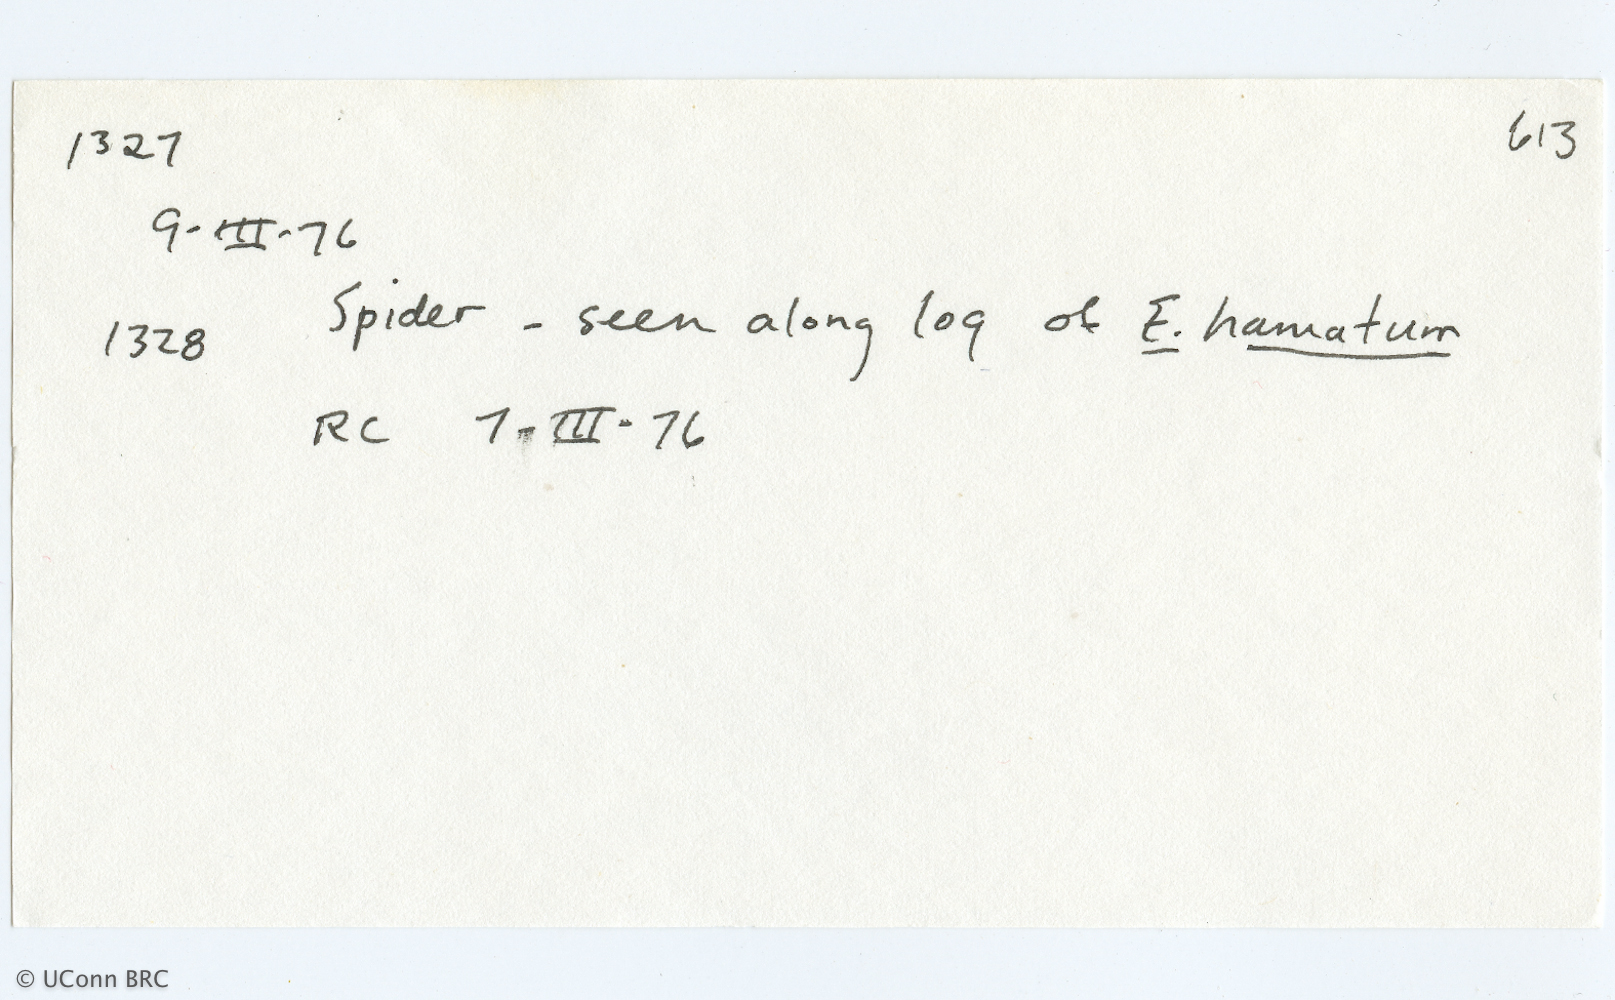 1327
613
9-III-76
1328 Spider - seen along log of E. hamatum
RC 7-III-76
© UConn BRC